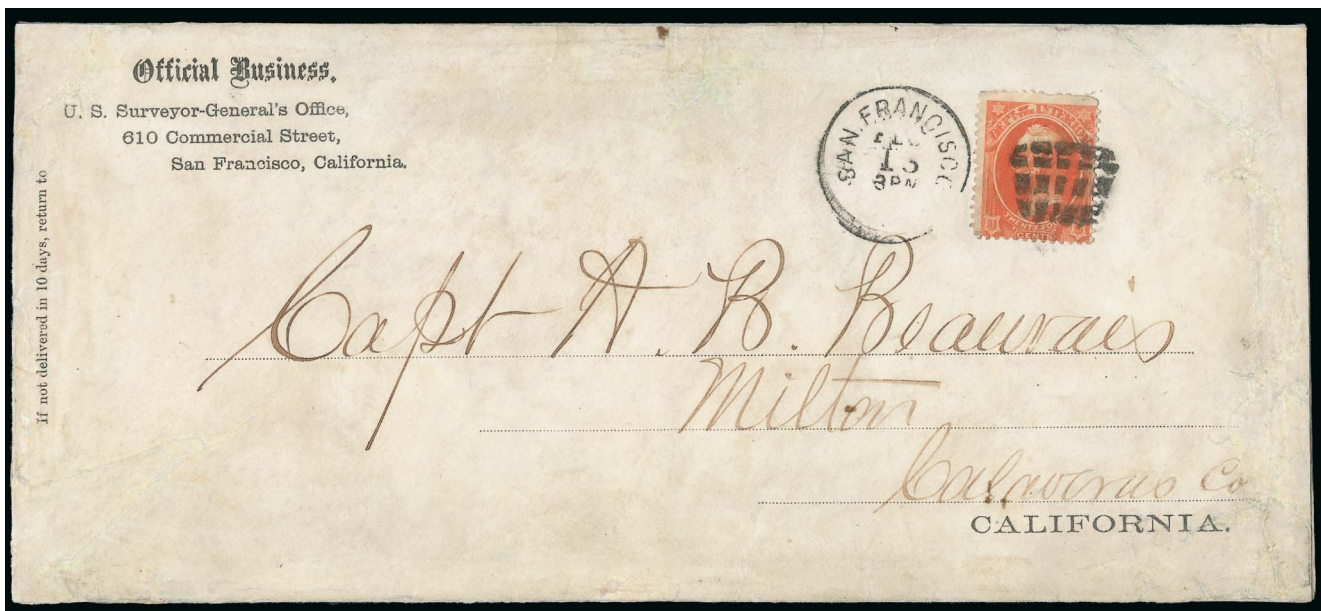 Official Business.
U. S. Surveyor-General's Office,
610 Commercial Street,
San Francisco, California.
If not delivered in 10 days, return to
SAN FRANCISCO
13
3PM
TWENTY FOUR
CENTS
Capt A. B. Beauvais
Milton
Calaveras Co
CALIFORNIA.